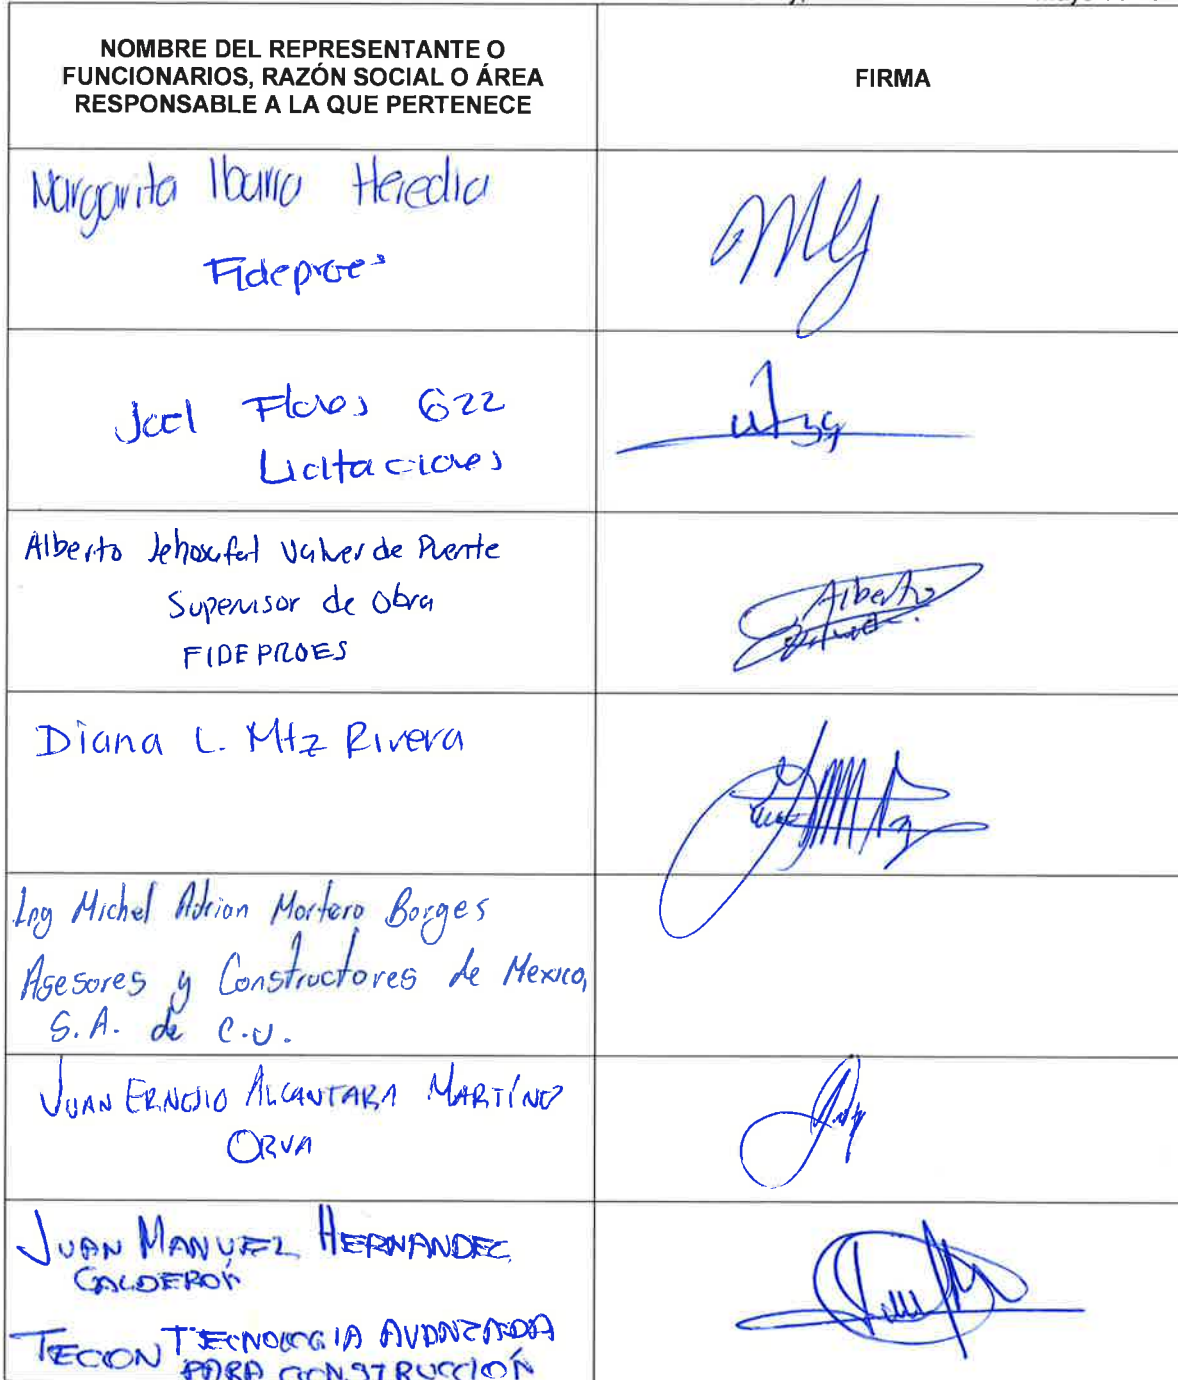 NOMBRE DEL REPRESENTANTE O
FUNCIONARIOS, RAZÓN SOCIAL O ÁREA
RESPONSABLE A LA QUE PERTENECE
FIRMA
Margarita Ibarra Heredia
Fideproes
Joel Flores G22
Licitaciones
Alberto Jehosafat Valverde Puente
Supervisor de Obra
FIDEPROES
Alberto
Diana L. Mtz Rivera
Ing Michel Adrian Mortero Borges
Asesores y Constructores de Mexico,
S.A. de C.V.
JUAN ERNESTO ALCANTARA MARTÍNEZ
ORVA
JUAN MANUEL HERNANDEZ
CALDERON
TECCON TECNOLOGIA AVANZADA
PARA CONSTRUCCIÓN